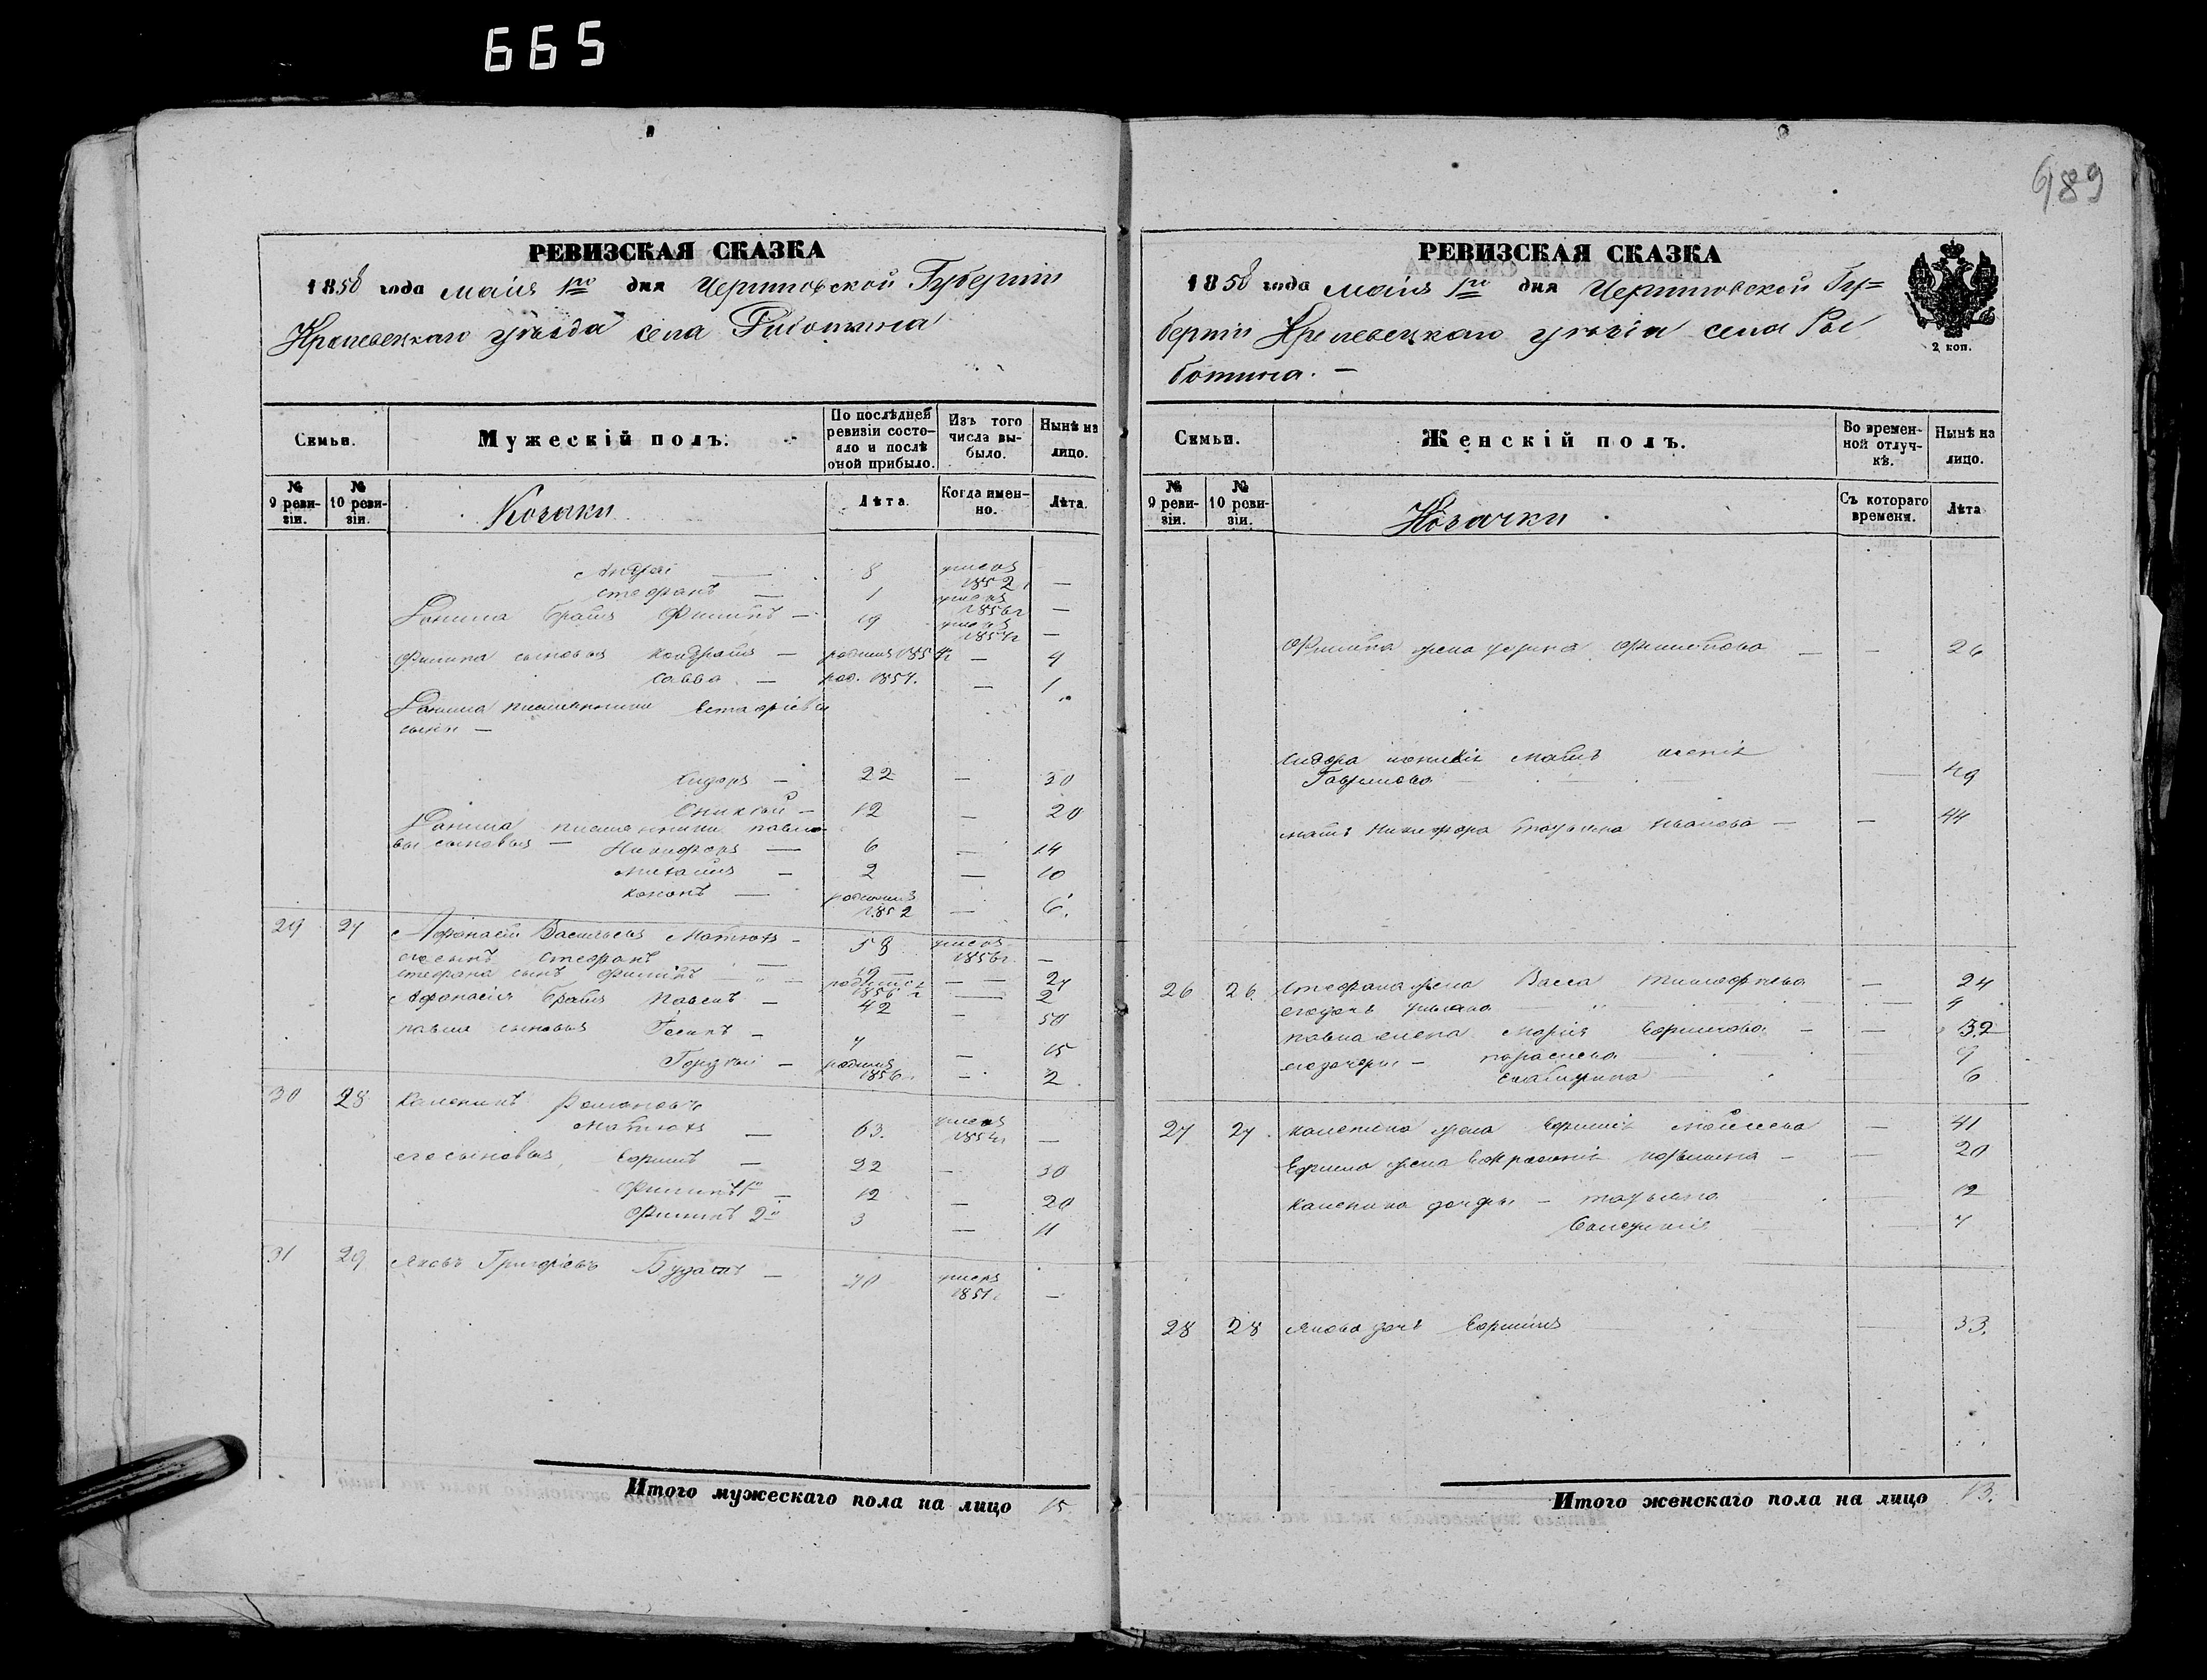 665
689
РЕВИЗСКАЯ СКАЗКА
1858 года маія 1го дня Черниговской Губерніи
Кролевецкаго уѣзда села Риботина
Семьи.
Мужескій полъ.
По послѣдней ревизіи состояло и послѣ оной прибыло.
Изъ того числа выбыло.
Нынѣ на лицо.
№ 9 ревизіи.
№ 10 ревизіи.
Козаки
Лѣта.
Когда именно.
Лѣта.
Андрей — 8 умеръ 1852 —
Стефанъ — 1 умеръ 1856г —
Данила братъ Филипъ — 19 умеръ —
Филипа сыновья Кондратъ — — 4
Савва — род. 1857. — 1
Данила племянники
сыны —
Сидоръ — 22 — 30
12 — 20
Данила племянники Павло
вы сыновья — Никифоръ — 6 — 14
Михаилъ — 2 — 10
Кононъ — родился 1852 — 6.
29 27 Афанасій Васильевъ — 58 умеръ 1856г. —
его сынъ Стефанъ — 19 — 27
Стефана сынъ Филипъ — родился 1856 г — 2
Афанасія братъ Павелъ — 42 — 50
Павла сыновья Осипъ — 7 — 15
Гордѣй — родился 1856 — 2
30 28 Каленикъ Романовъ
— 63. умеръ —
его сыновья, Ефимъ — 22 — 30
Филипъ 1й — 12 — 20
Филипъ 2й 3 — 11
31 29 Яковъ Григорьевъ — 70 умеръ 1851г —
Итого мужескаго пола на лицо 15.
РЕВИЗСКАЯ СКАЗКА
1858 года маія 1го дня Черниговской Гу=
берніи Кролевецкаго уѣзда села Ры
ботина. —
2 коп.
Семьи.
Женскій полъ.
Во временной отлучкѣ.
Нынѣ на лицо.
№ 9 ревизіи.
№ 10 ревизіи.
Козачки
Съ котораго времени.
Лѣта
Филипа жена Филипова — — 26
Сидора мать
Гаврилова — 49
мать Никифора Татьяна Иванова — — 44
26 26 Стефана жена Васса — 24
его дочь Ульяна — 4
Павла жена Марія Ефимова — — 32
его дочери — Параскева — 9
Екатерина — 6
27 27 Каленика жена Ефимія Мойсеева — 41
Ефима жена Евфросинія — — 20
Каленика дочери — Татьяна — 12
— 7
28 28 Якова дочь Ефимія — 33.
Итого женскаго пола на лицо 13.